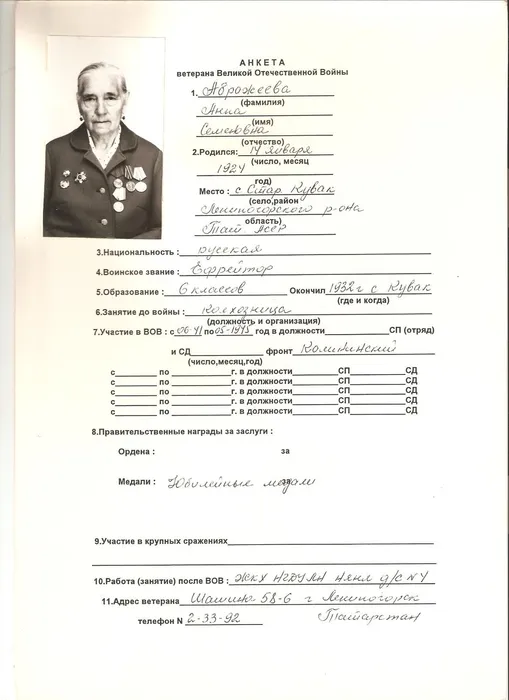 АНКЕТА
ветерана Великой Отечественной Войны
1. Аброжеева
(фамилия)
Анна
(имя)
Семеновна
(отчество)
2.Родился: 14 января
(число, месяц
1924
год)
Место : с Стар. Кувак
(село,район
Лениногорского р-она
область)
Тат. Асср
3.Национальность : русская
4.Воинское звание : Ефрейтор
5.Образование : 6 классов Окончил 1932 г с Кувак
(где и когда)
6.Занятие до войны : колхозница
(должность и организация)
7.Участие в ВОВ : с 06-41 по 05-1945 год в должности СП (отряд)
и СД фронт Калининский
(число,месяц,год)
с по г. в должности СП СД
с по г. в должности СП СД
с по г. в должности СП СД
с по г. в должности СП СД
с по г. в должности СП СД
8.Правительственные награды за заслуги :
Ордена : за
Медали : Юбилейные медали
9.Участие в крупных сражениях
10.Работа (занятие) после ВОВ : ЖКУ НГДУ ЛН няня д/с №4
11.Адрес ветерана 58-6 г Лениногорск
телефон N 2-33-92 Татарстан